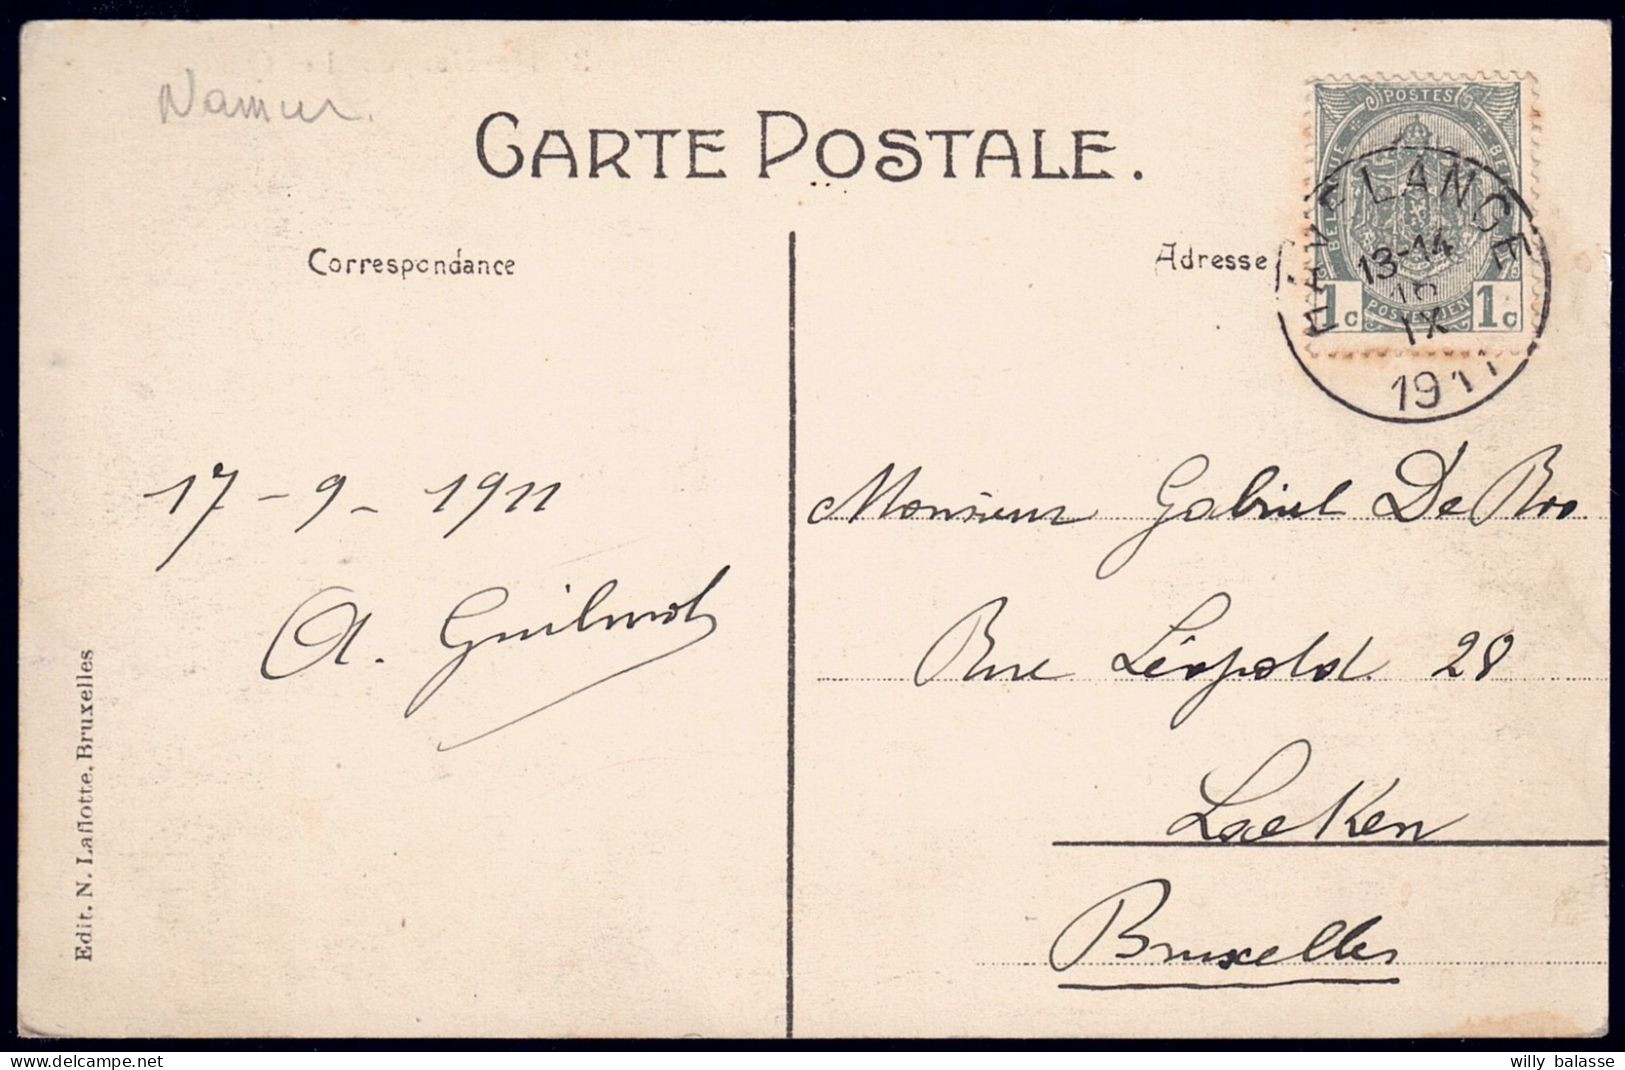 Namur.
CARTE POSTALE.
Correspondance
Adresse
POSTES
BELGIQUE BELGIE
POSTERIJEN
1c 1c
HAVELANGE
13-14
18
IX
1911
17-9-1911
A. Guilmot
Monsieur Gabriel De Roo
Rue Léopold 28
Laeken
Bruxelles
Edit. N. Laflotte, Bruxelles
willy balasse